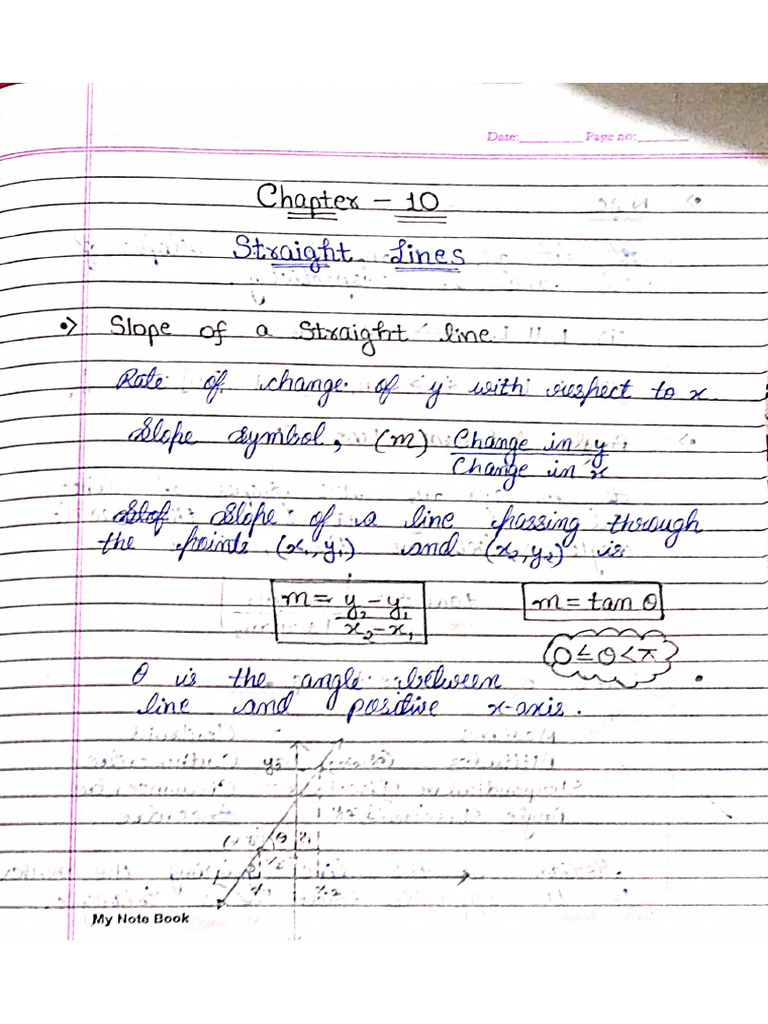 Date:________ Page no:________
Chapter - 10
Straight Lines
•> Slope of a Straight line
Rate of change of y with respect to x
Slope symbol, (m) Change in y
Change in x
Slope of a line passing through
the points (x₁, y₁) and (x₂, y₂) is
m = y₂ - y₁ m = tan θ
x₂ - x₁
0 ≤ θ < π
θ is the angle between
line and positive x-axis.
y₂
θ
x₁ x₂
My Note Book